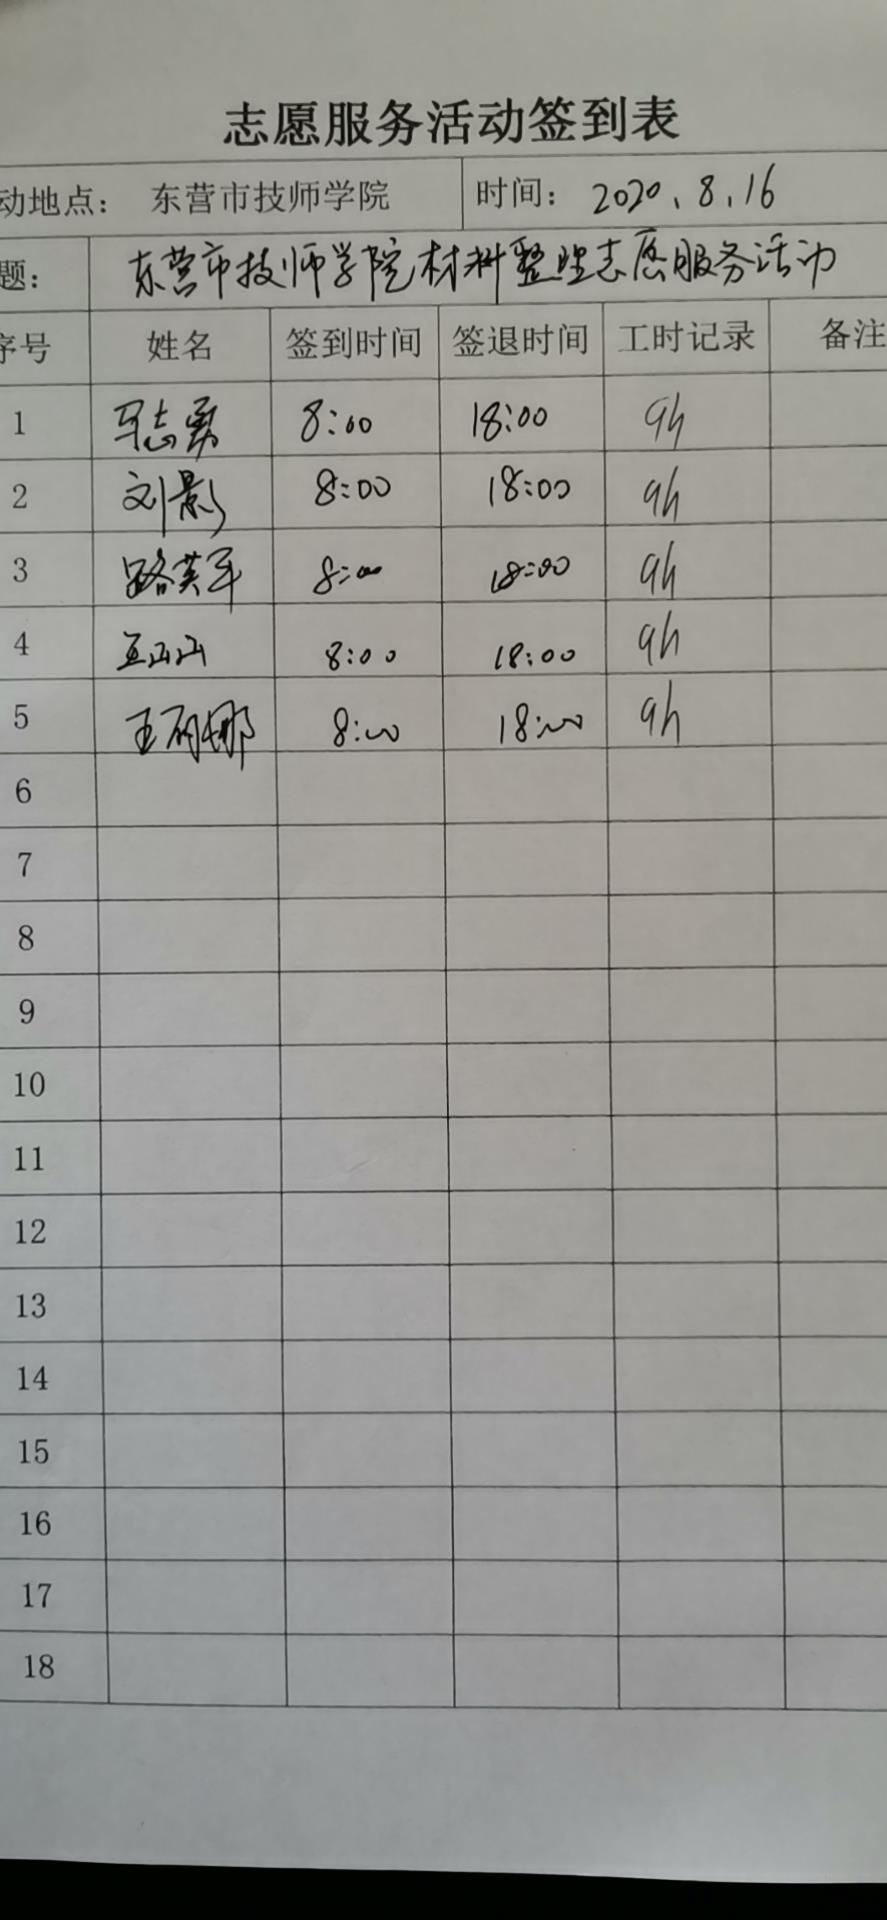 志愿服务活动签到表
动地点： 东营市技师学院 时间： 2020.8.16
题： 东营市技师学院材料整理志愿服务活动
序号 姓名 签到时间 签退时间 工时记录 备注
1 马志勇 8:00 18:00 9h
2 刘影 8:00 18:00 9h
3 路英军 8:00 18:00 9h
4 8:00 18:00 9h
5 王丽娜 8:00 18:00 9h
6
7
8
9
10
11
12
13
14
15
16
17
18